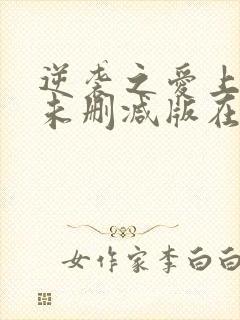 逆袭之爱上
未删减版在
女作家李白白